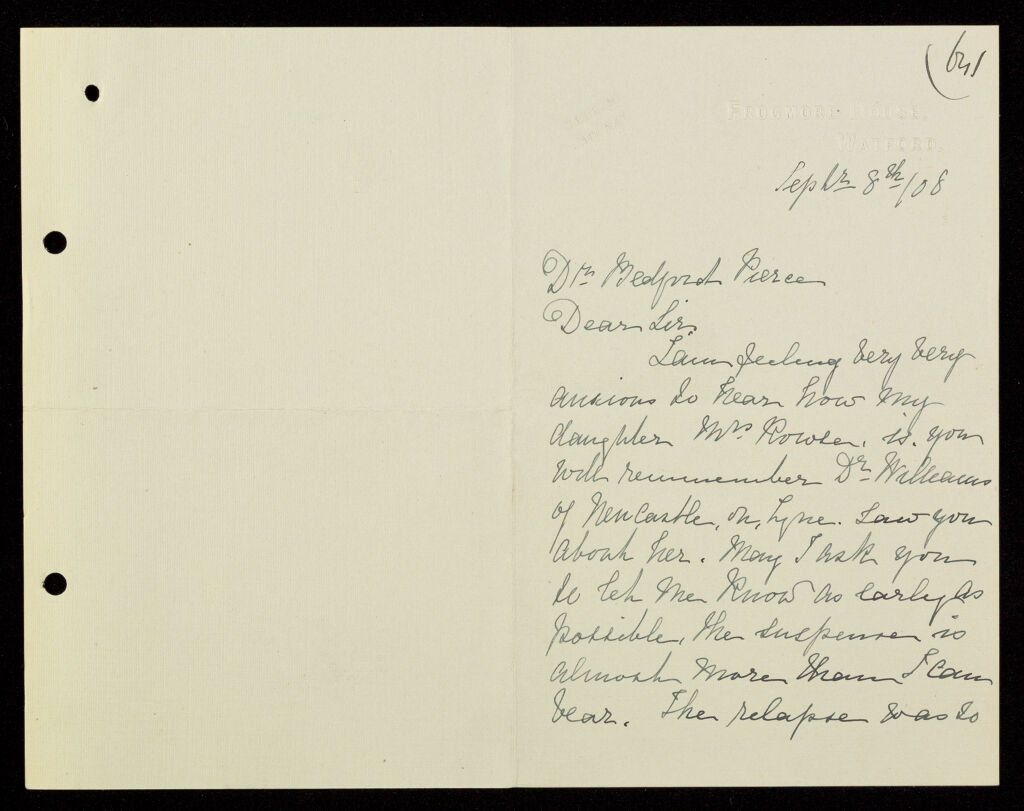 (641
FROGMORE HOUSE,
WATFORD.
Septr 8th/08
Dr Bedford Pierce
Dear Sir
I am feeling very very
anxious to hear how my
daughter Mrs Rowse, is. you
will remmember Dr Williams
of Newcastle, on, Tyne. saw you
about her. May I ask you
to let me know as early as
possible, the suspense is
almost more than I can
bear. The relapse was so